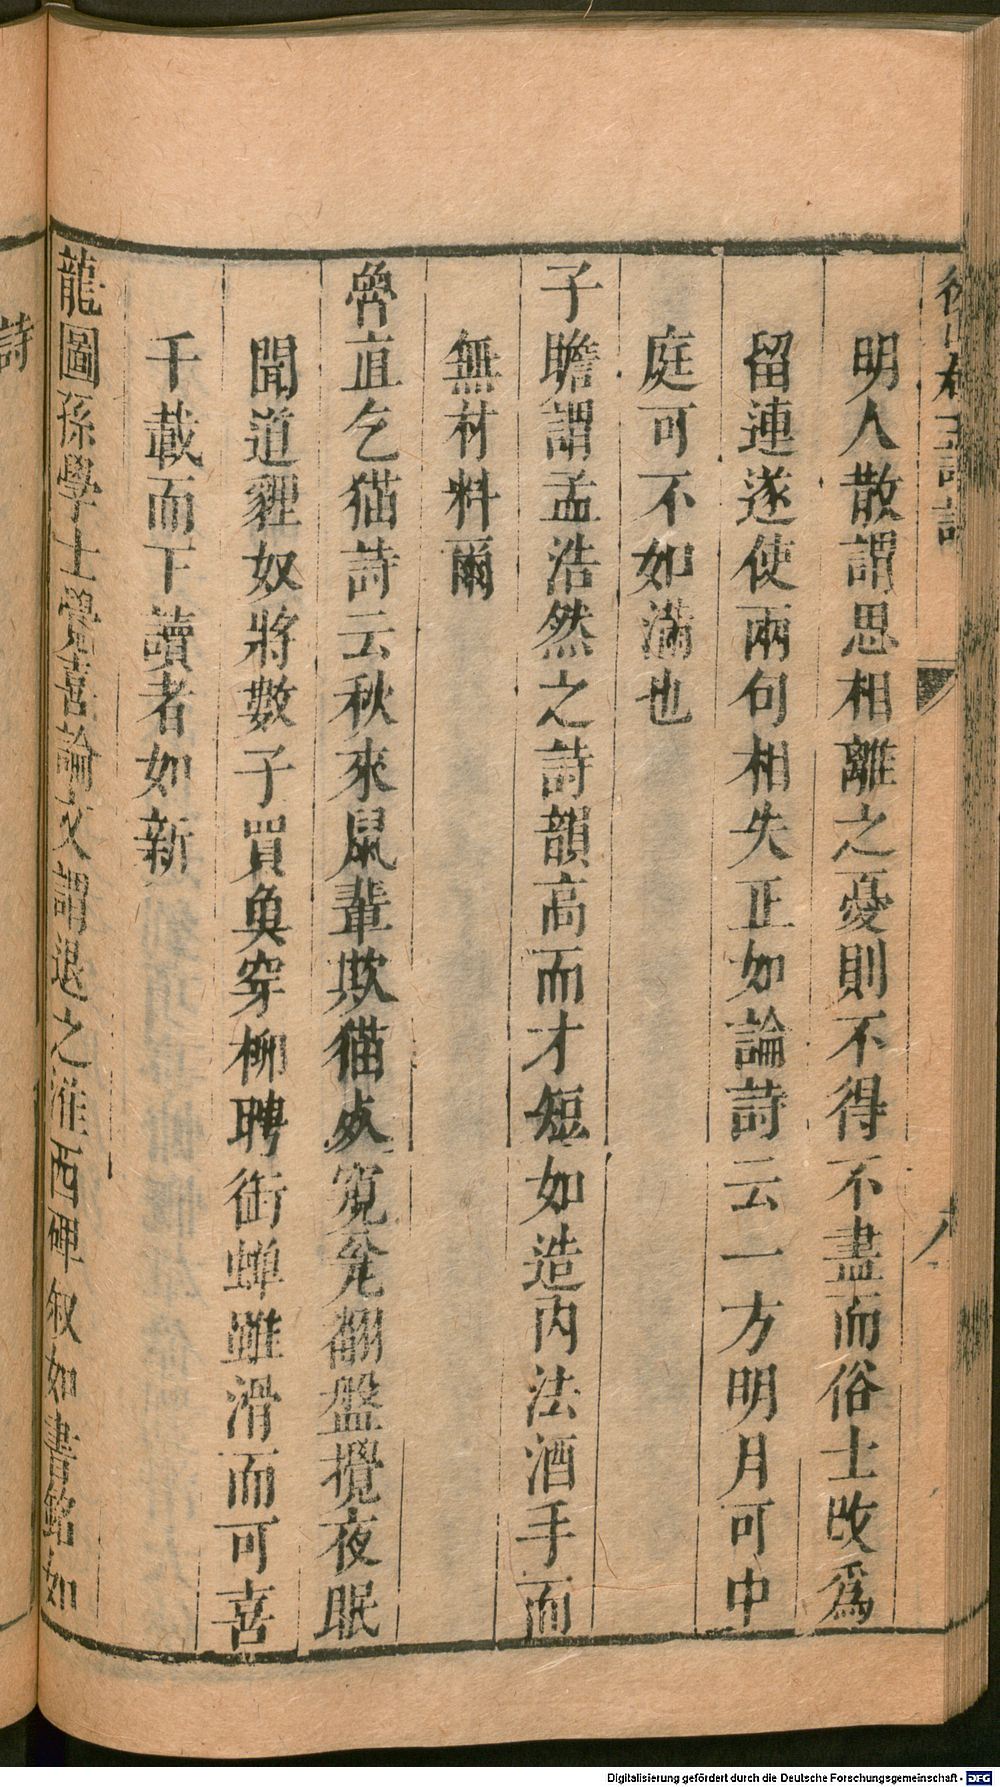 明人散謂思相離之憂則不得不盡而俗士改爲
留連遂使兩句相失正如論詩云一方明月可中
庭可不如滿也
子瞻謂孟浩然之詩韻高而才短如造內法酒手而
無材料爾
魯直乞猫詩云秋來鼠輩欺猫死窺瓮翻盤攪夜眠
聞道貍奴將數子買魚穿柳聘銜蟬雖滑而可喜
千載而下讀者如新
龍圖孫學士覺喜論文謂退之淮西碑叙如書銘如
詩
Digitalisierung gefördert durch die Deutsche Forschungsgemeinschaft - DFG